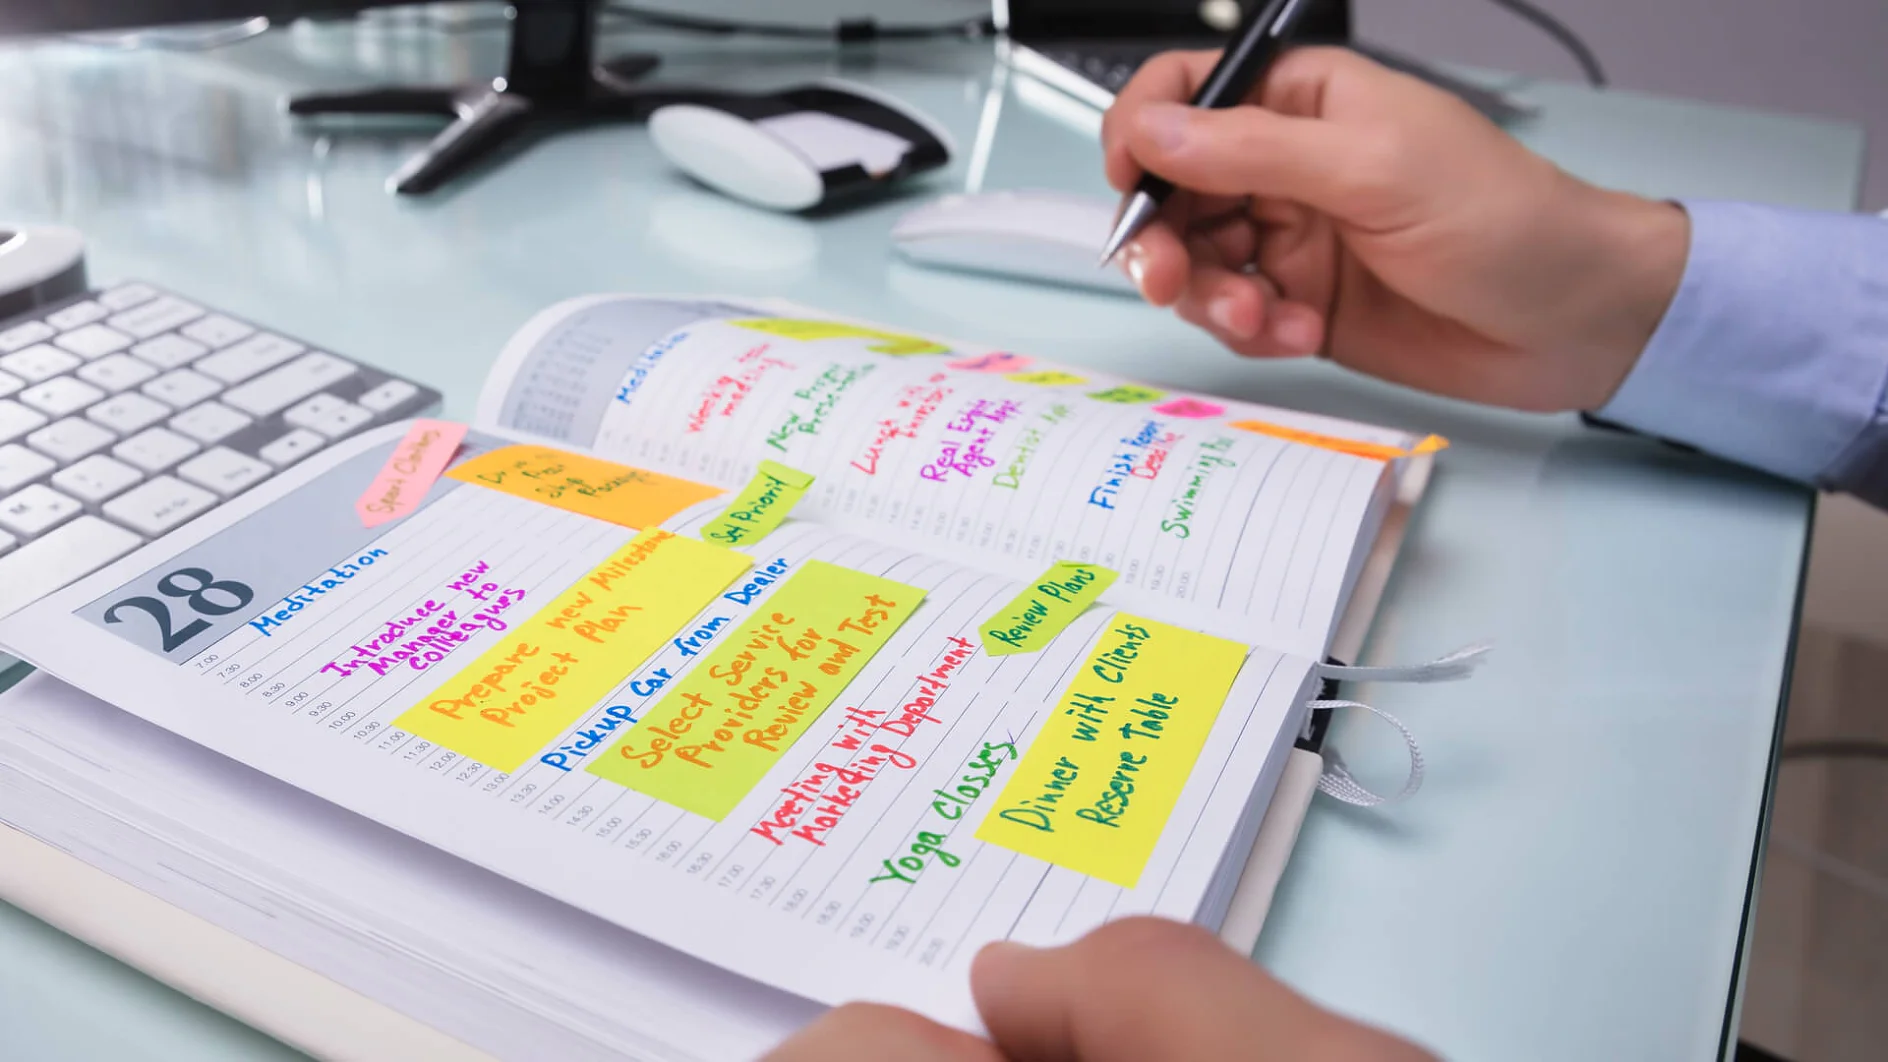 28
Meditation
Introduce new
Manager to
colleagues
Prepare new Milestone
Project Plan
Pickup Car from Dealer
Select Service
Providers for
Review and Test
Meeting with
Marketing Department
Yoga Classes
Dinner with Clients
Reserve Table
Sport Clothes
Set Priorit
Review Plans
7.00
7.30
8.00
8.30
9.00
9.30
10.00
10.30
11.00
11.30
12.00
12.30
13.00
13.30
14.00
14.30
15.00
15.30
16.00
16.30
17.00
17.30
18.00
18.30
19.00
19.30
20.00
Meditation
meeting
New
Lunch with
Real Estate
Agent Appt
Dentist Appt
Finish Report
Swimming